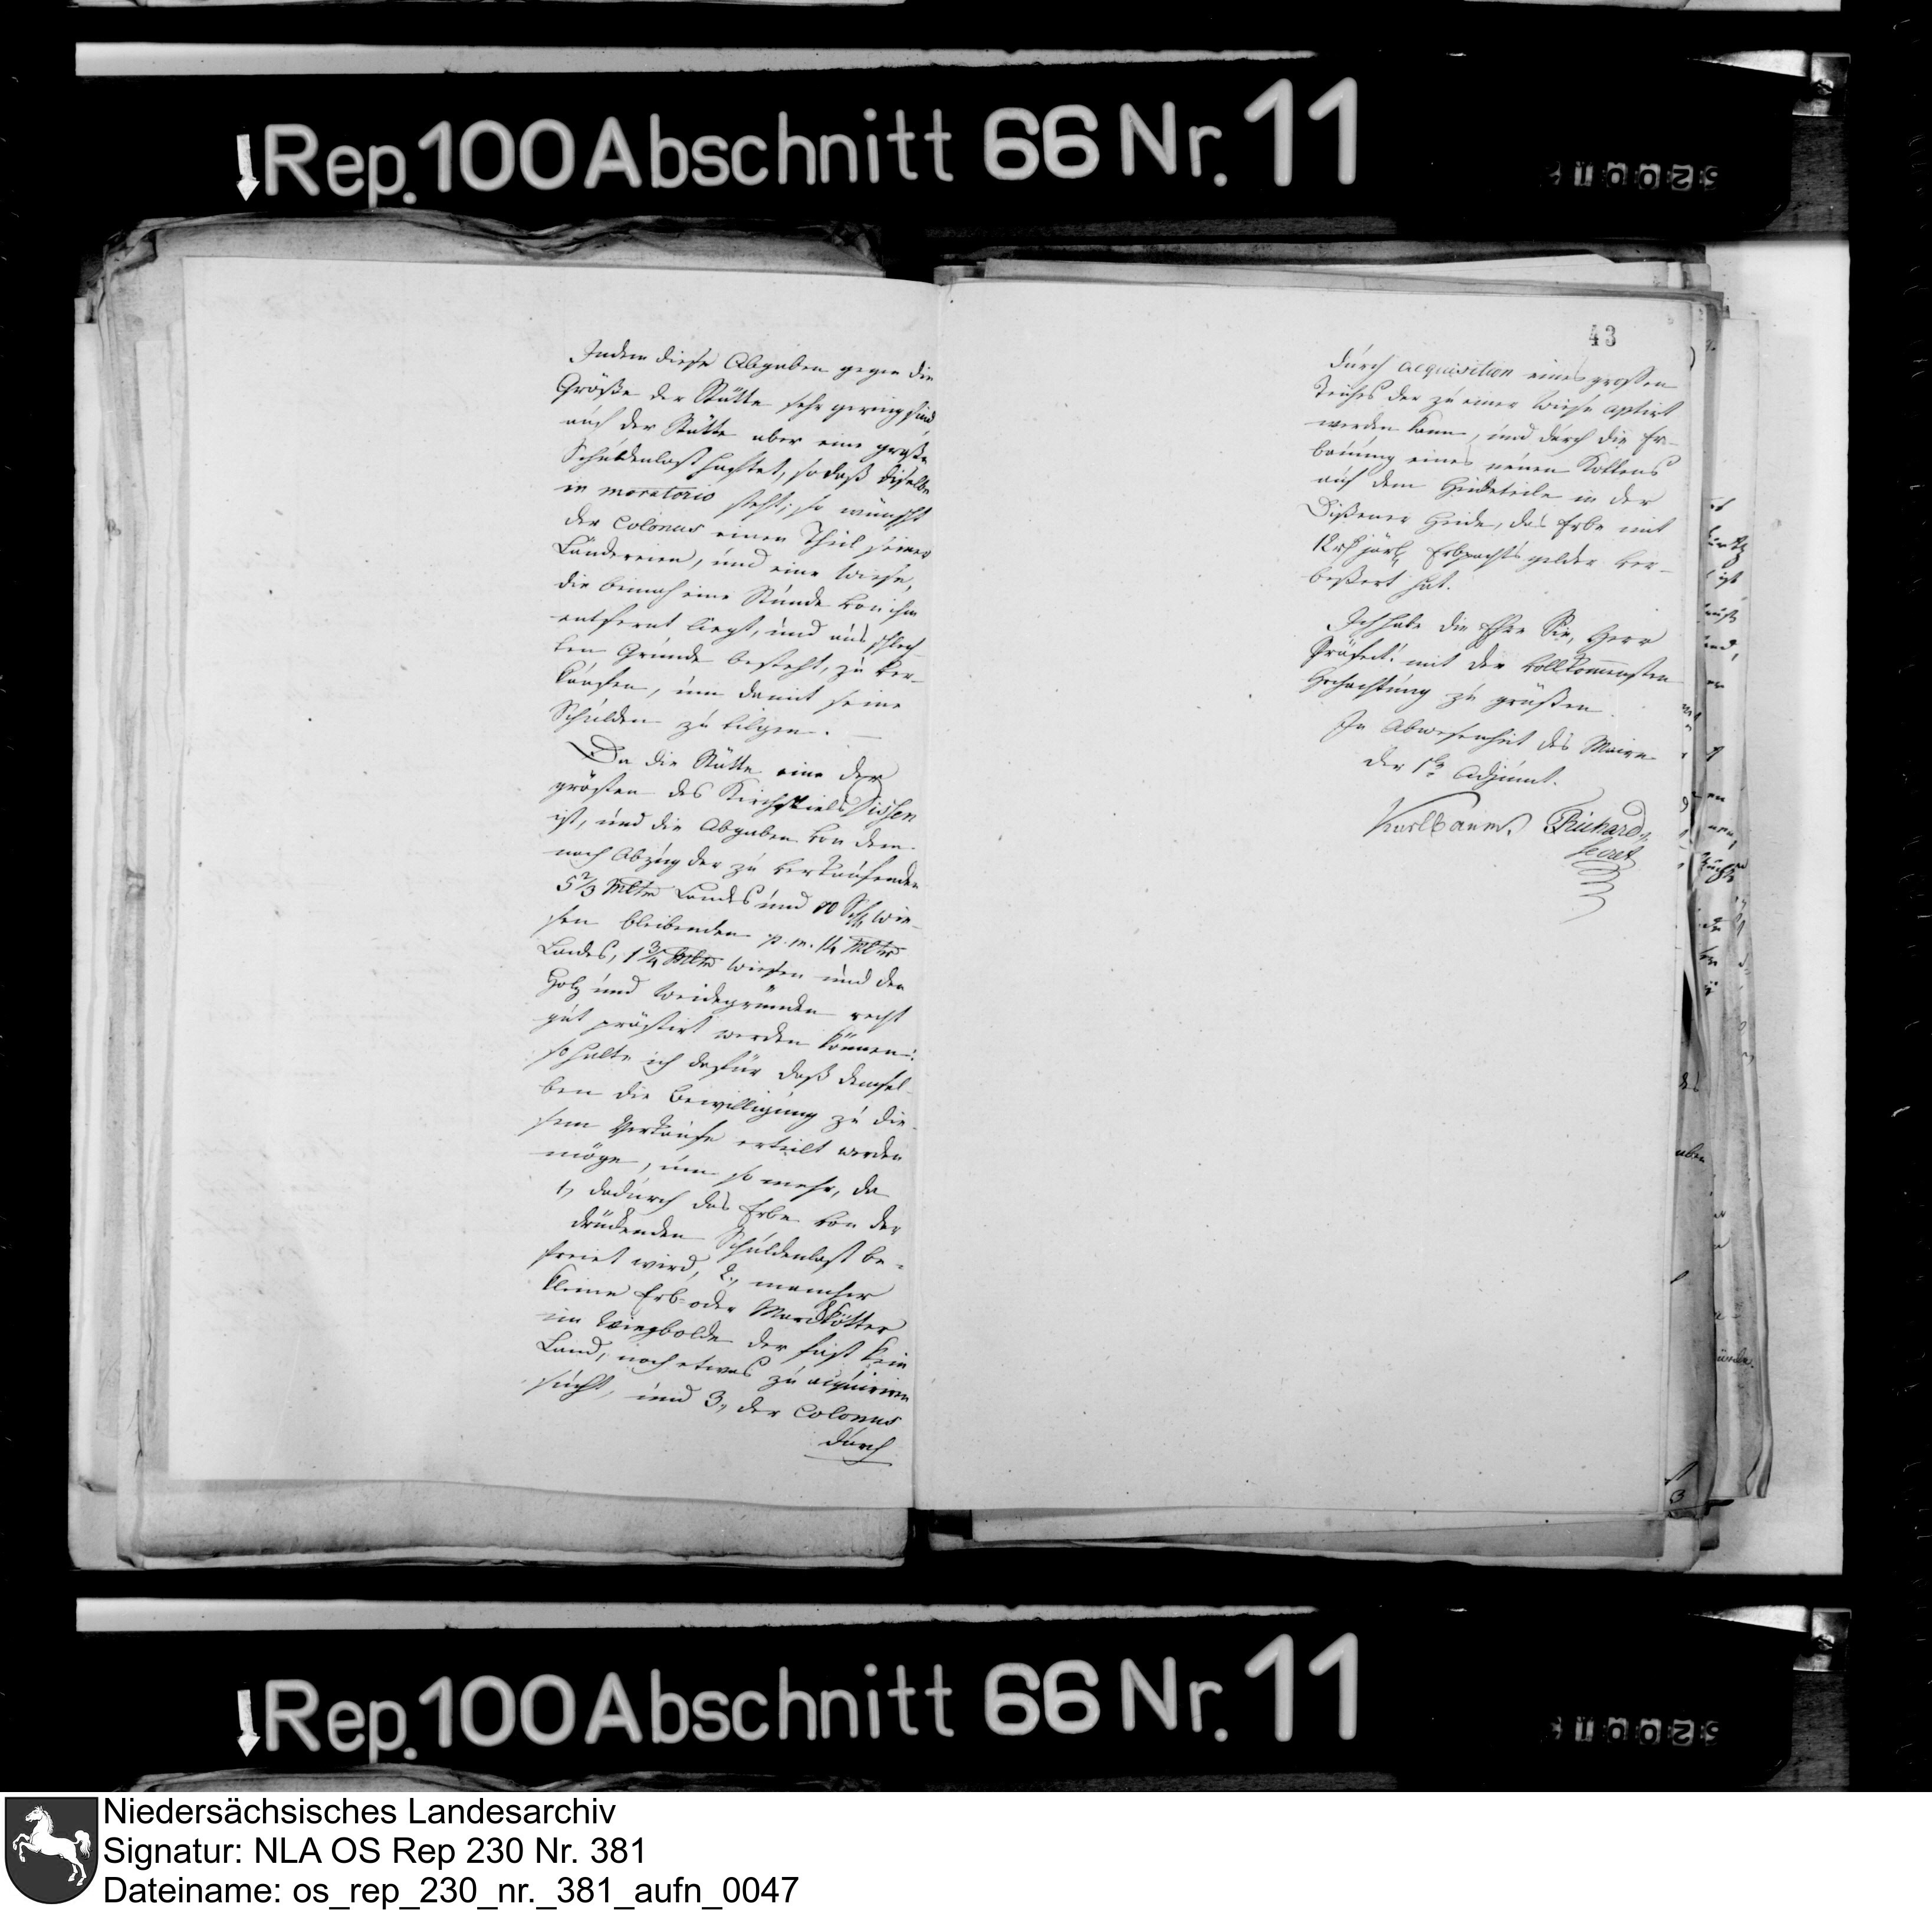 Rep. 100 Abschnitt 66 Nr. 11
Indem diese Abgaben gegen die
Größe der Stätte sehr gering sind
auf der Stätte aber eine große
Schuldenlast haftet, so daß diselbe
in moratorio steht; so wünscht
der Colonus einen Theil seiner
Ländereien, und eine Wiese,
die beinah eine Stunde von ihm
entfernt liegt, und aus schlech-
ten Grunde besteht, zu ver-
kaufen, um damit seine
Schulden zu tilgen. —
Da die Stätte eine der
größten des Kirchspiels Dissen
ist, und die Abgaben von dem
nach Abzug der zu verkaufenden
5 2/3 Mltr Landes und Wie-
sen bleibenden p. m. 14 Mltr
Landes, 1 3/4 Mltr Wiesen und den
Holz und Weidegründen recht
gut prästirt werden können:
so halte ich dafür daß demsel-
ben die Bewilligung zu die-
sem Verkaufe erteilt werden
möge, um so mehr, da
1, dadurch das Erbe von der
drückenden Schuldenlast be-
freiet wird, 2, mancher
kleine Erb- oder Markkötter
im Wiegbolde der fast kein
Land, noch etwas zu acquiriren
sucht, und 3, der Colonus
durch
43
durch acquisition eines großen
Teiches der zu einer Wiese aptirt
werden kann, und durch die Er-
bauung eines neuen Kottens
auf dem Heideteile in der
Dißener Heide, das Erbe mit
12 rh järl. Erbpachts gelder ver-
beßert hat.
Ich habe die Ehre Sie, Herr
Präfect! mit der vollkommensten
Hochachtung zu grüßen.
In Abwesenheit des Maire
der 1te Adjunct.
Richard
Secret
Rep. 100 Abschnitt 66 Nr. 11
Niedersächsisches Landesarchiv
Signatur: NLA OS Rep 230 Nr. 381
Dateiname: os_rep_230_nr._381_aufn_0047